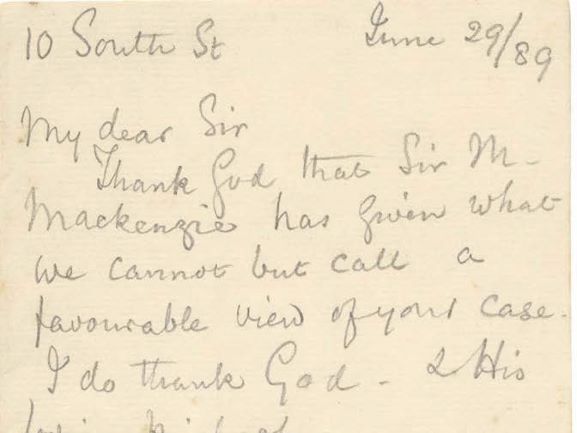 10 South St June 29/89
My dear Sir
Thank God that Sir M.
Mackenzie has given what
we cannot but call a
favourable view of your case.
I do thank God - & His